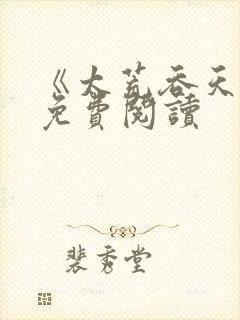 《大荒吞天
免費閱讀
裴秀堂